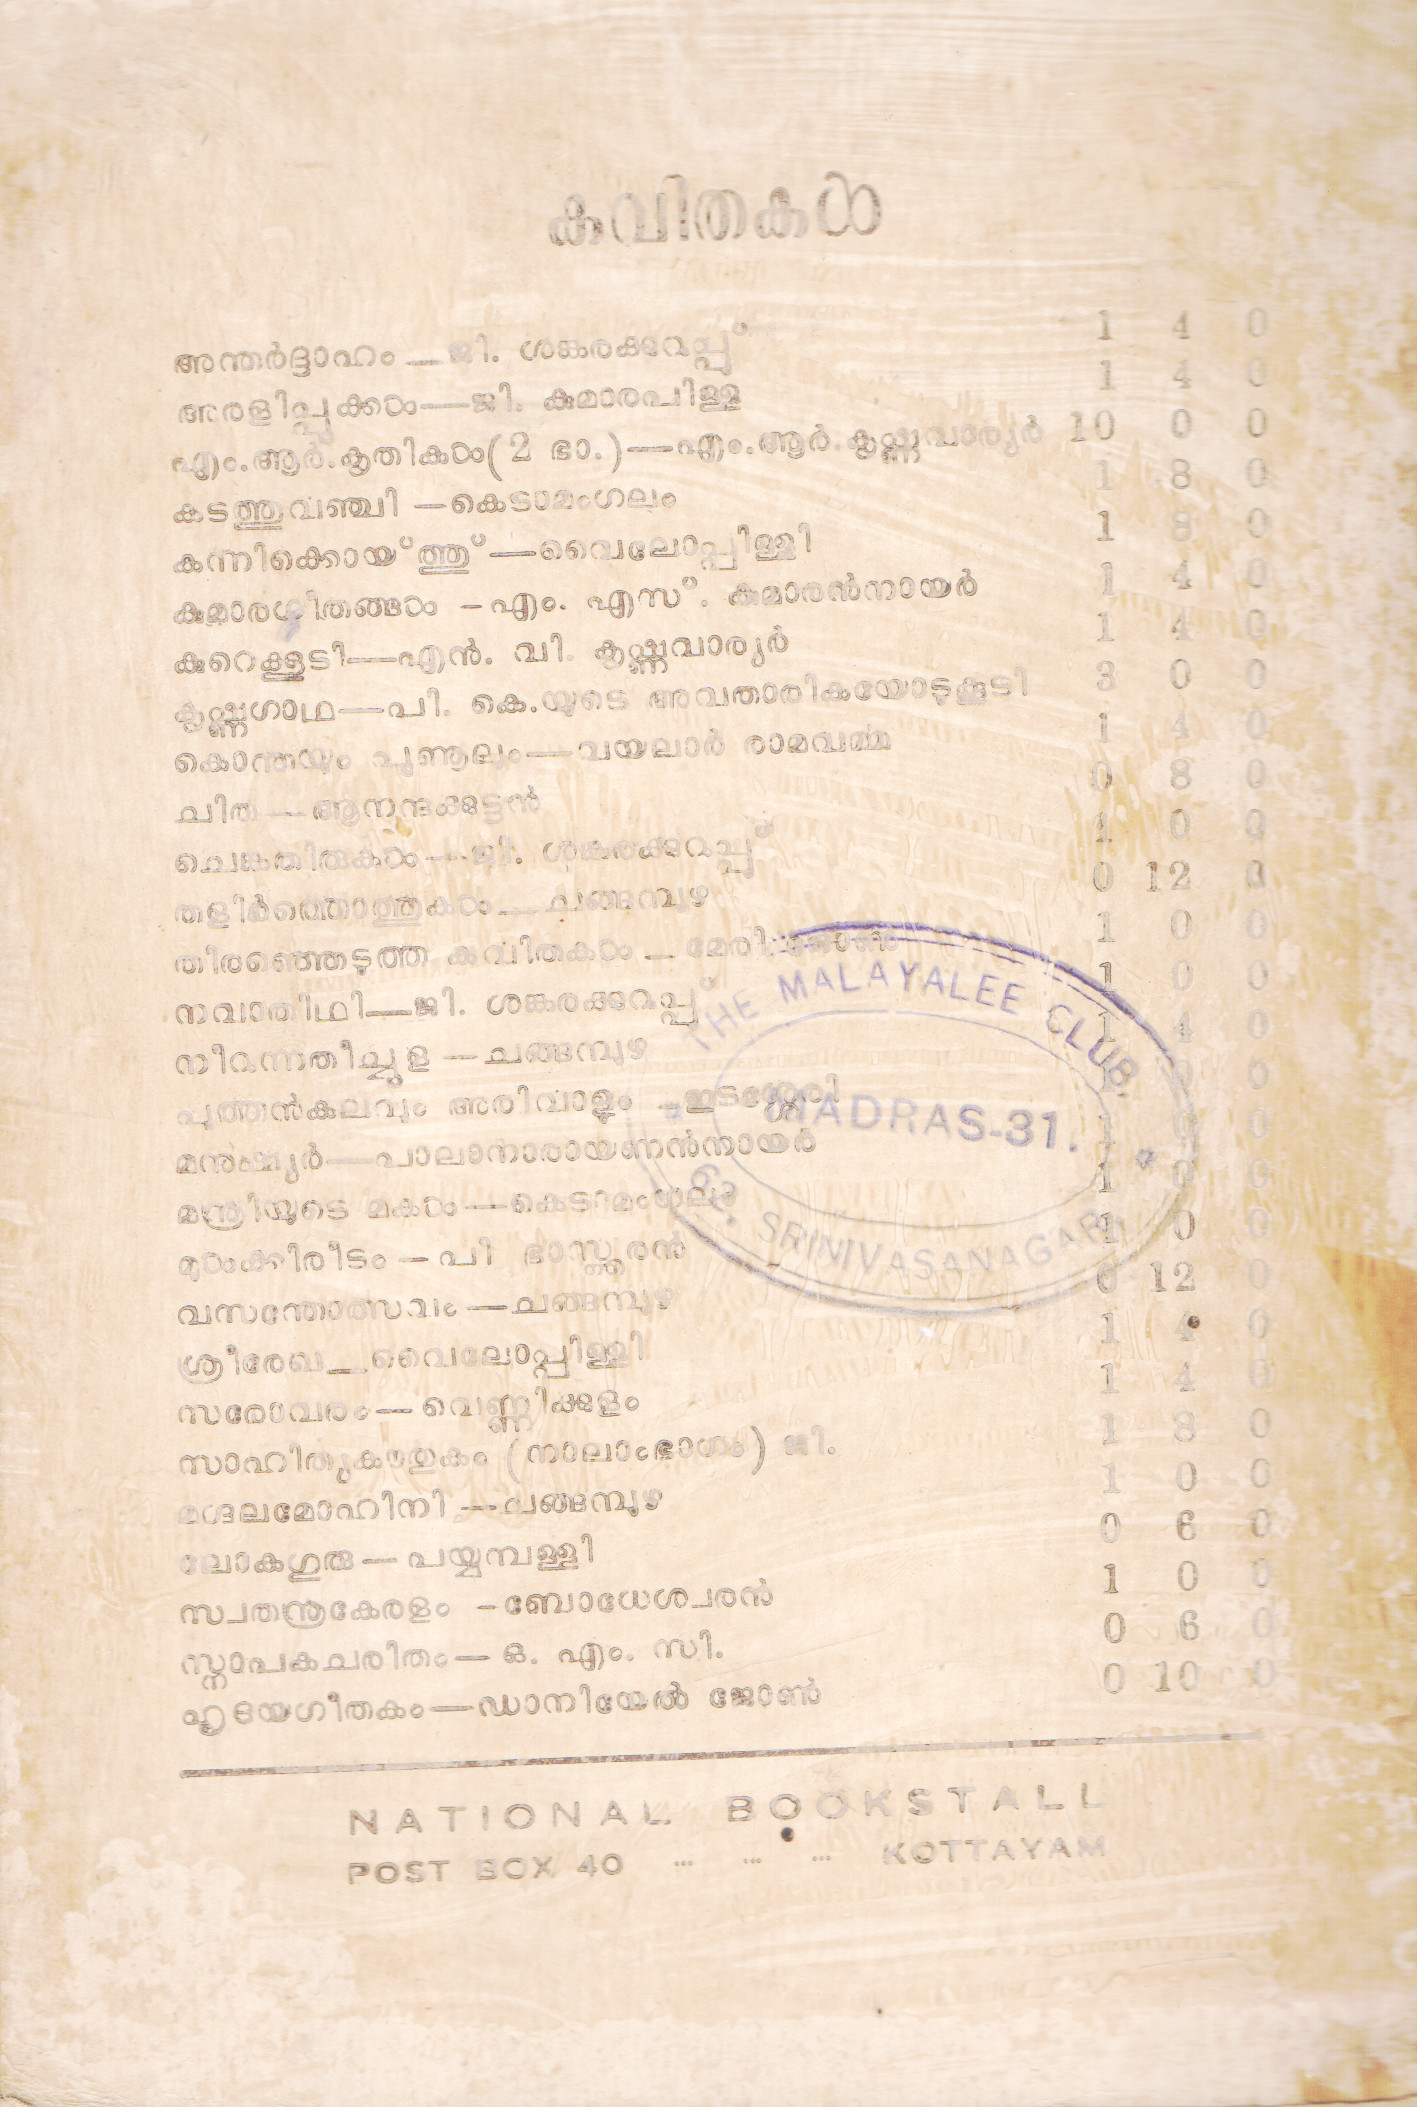 കവിതകൾ
അന്തർദ്ദാഹം—ജി. ശങ്കരക്കുറുപ്പ് 1 4 0
അരളിപ്പൂക്കൾ—ജി. കുമാരപിള്ള 1 4 0
എം.ആർ.കൃതികൾ(2 ഭാ.)—എം.ആർ.കൃഷ്ണവാര്യർ 10 0 0
കടത്തുവഞ്ചി—കെടാമംഗലം 1 8 0
കന്നിക്കൊയ്ത്ത്—വൈലോപ്പിള്ളി 1 8 0
കുമാരഗീതങ്ങൾ - എം. എസ്. കുമാരൻനായർ 1 4 0
കുറെക്കൂടി—എൻ. വി. കൃഷ്ണവാര്യർ 1 4 0
കൃഷ്ണഗാഥ—പി. കെ.യുടെ അവതാരികയോടുകൂടി 3 0 0
കൊന്തയും പൂണൂലും—വയലാർ രാമവർമ്മ 1 4 0
ചിത—ആനന്ദക്കുട്ടൻ 0 8 0
ചെങ്കതിരുകൾ—ജി. ശങ്കരക്കുറുപ്പ് 1 0 0
തളിർത്തൊത്തുകൾ—ചങ്ങമ്പുഴ 0 12 0
തിരഞ്ഞെടുത്ത കവിതകൾ—മേരി ജോൺ 1 0 0
നവാതിഥി—ജി. ശങ്കരക്കുറുപ്പ് 1 0 0
നീറുന്നതീച്ചൂള—ചങ്ങമ്പുഴ 1 4 0
പുത്തൻകലവും അരിവാളും—ഇടശ്ശേരി 0 0
മനുഷ്യർ—പാലാനാരായണൻനായർ 1 0
മന്ത്രിയുടെ മകൾ—കെടാമംഗലം 1 0 0
മുൾക്കിരീടം—പി ഭാസ്കരൻ 1 0 0
വസന്തോത്സവം—ചങ്ങമ്പുഴ 0 12 0
ശ്രീരേഖ—വൈലോപ്പിള്ളി 1 4 0
സരോവരം—വെണ്ണിക്കുളം 1 4 0
സാഹിത്യകൗതുകം (നാലാംഭാഗം) ജി. 1 8 0
മഗ്ദലമോഹിനി—ചങ്ങമ്പുഴ 1 0 0
ലോകഗുരു—പയ്യമ്പള്ളി 0 6 0
സ്വതന്ത്രകേരളം - ബോധേശ്വരൻ 1 0 0
സ്നാപകചരിതം—ഒ. എം. സി. 0 6 0
ഹൃദയഗീതകം—ഡാനിയേൽ ജോൺ 0 10 0
THE MALAYALEE CLUB.
MADRAS-31.
SRINIVASANAGAR
NATIONAL BOOKSTALL
POST BOX 40 ... ... ... KOTTAYAM